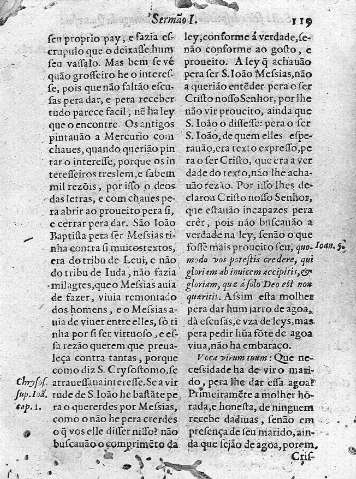 Sermão I. 119
seu proprio pay, e fazia es-
crupulo que o deixasse hum
seu vassalo. Mas bem se vé
quão grosseiro he o interes-
se, pois que não faltão escu-
sas pera dar, e pera receber
tudo parece facil; né ha ley
que o encontre. Os antigos
pintauão a Mercurio com
chaues, quando querião pin-
tar o interesse, porque os in-
teresseiros treslem, e sabem
mil rezões, por isso o deos
das letras, e com chaues pe-
ra abrir ao proueito pera si,
e cerrar pera dar. São Ioão
Baptista pera ser Messias ti-
nha contra si muitos textos,
era do tribu de Leui, e não do
tribu de Iuda, não fazia
milagres, que o Messias auia
de fazer, viuia remontado
dos homens, e o Messias a-
uia de viuer entre elles, só ti-
nha por si ser virtuoso, e es-
sa rezão querem que preua-
leça contra tantas, porque
como diz S. Crysostomo, se
atrauessaua interesse. Se a vir-
tude de S. Ioão he bastáte pe-
ra o quererdes por Messias,
como o não he pera crerdes
o q̃ vos elle disser nisso? não
buscauão o comprimẽto da
Chrysos.
sup. Ioã.
cap. 1.
ley, conforme á verdade, se-
não conforme ao gosto, e
proueito. A ley q̃ achauão
pera ser S. Ioão Messias, não
a querião entẽder pera o ser
Cristo nosso Senhor, por lhe
não vir proueito, ainda que
S. Ioão o dissesse: pera o ser
S. Ioão, de quem elles espe-
rauão, era texto expresso, pe-
ra o ser Cristo, que era a ver-
dade do texto, não lhe acha-
uão rezão. Por isso lhes de-
clarou Cristo nosso Senhor,
que estauão incapazes pera
crèr, pois não buscauão a
verdade na ley, senão o que
fosse mais proueito seu, quo-
modo vos potestis credere, qui
gloriam ab inuicem accipitis, &
gloriam, quæ à solo Deo est non
quæritis. Assim esta molher
pera dar hum jarro de agoa,
dà escusas, e vza de leys, mas
pera pedir hũa fóte de agoa
viua, não ha embaraco.
Ioan. 5.
Voca virum tuum: Que ne-
cessidade ha de vir o mari-
do, pera lhe dar essa agoa?
Primeiramẽte a molher hó-
rada, e honesta, de ninguem
recebe dadiuas, senão em
presença de seu marido, ain-
da que sejão de agoa, porem,
Cris-